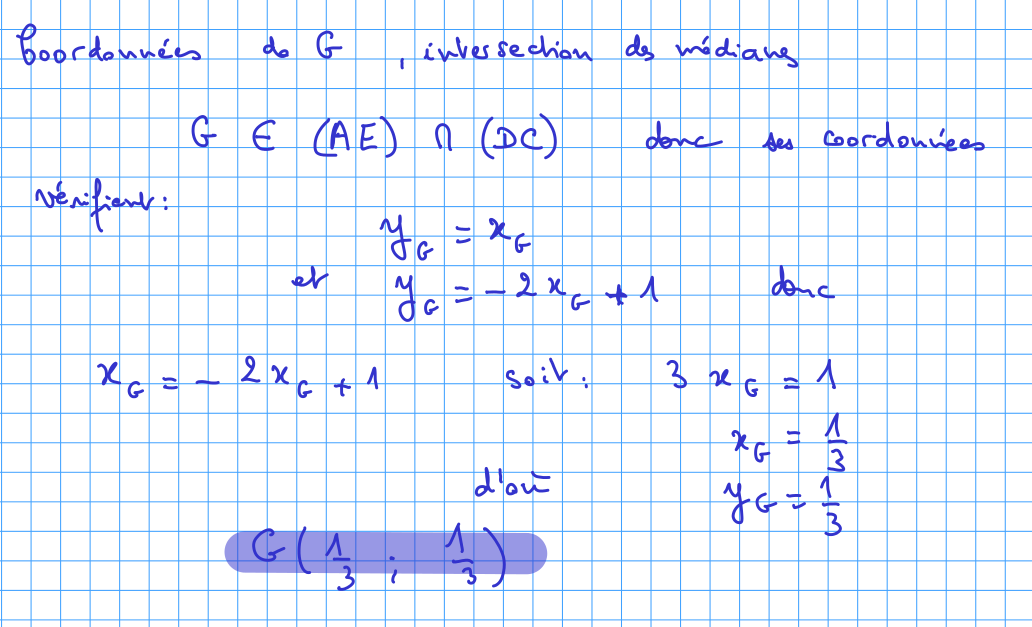 Coordonnées de G, intersection des médianes
G ∈ (AE) ∩ (DC) donc ses coordonnées
vérifient :
y_G = x_G
et y_G = -2x_G + 1 donc
x_G = -2x_G + 1 soit : 3x_G = 1
x_G = 1/3
d'où y_G = 1/3
G(1/3 ; 1/3)